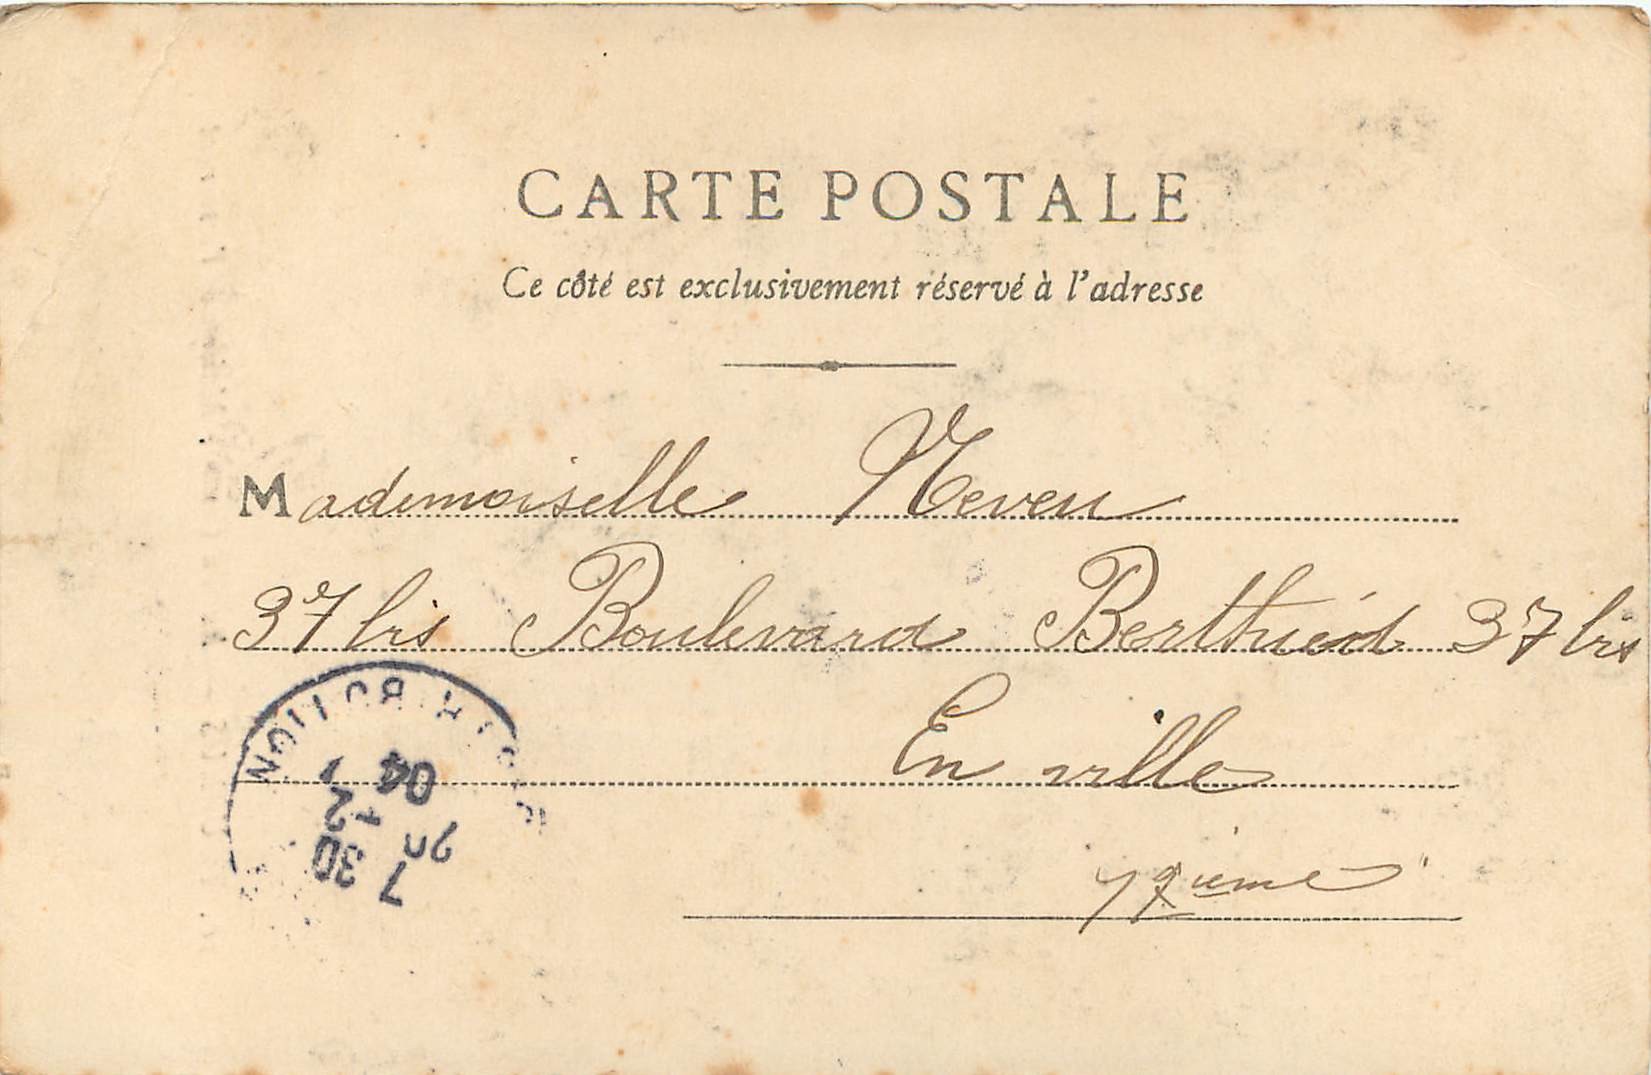 CARTE POSTALE
Ce côté est exclusivement réservé à l'adresse
Mademoiselle Neveu
37 bis Boulevard Berthier 37 bis
En ville
17ième
7 30
20 12
04